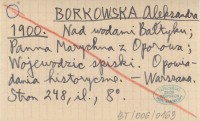 BORKOWSKA Aleksandra
1900. Nad wodami Bałtyku;
Panna Marychna z Oporowa;
Wojewodzic spiski. Opowia-
dania historyczne. — Warszawa.
Stron 248, il., 8°.
BJ/006/0163